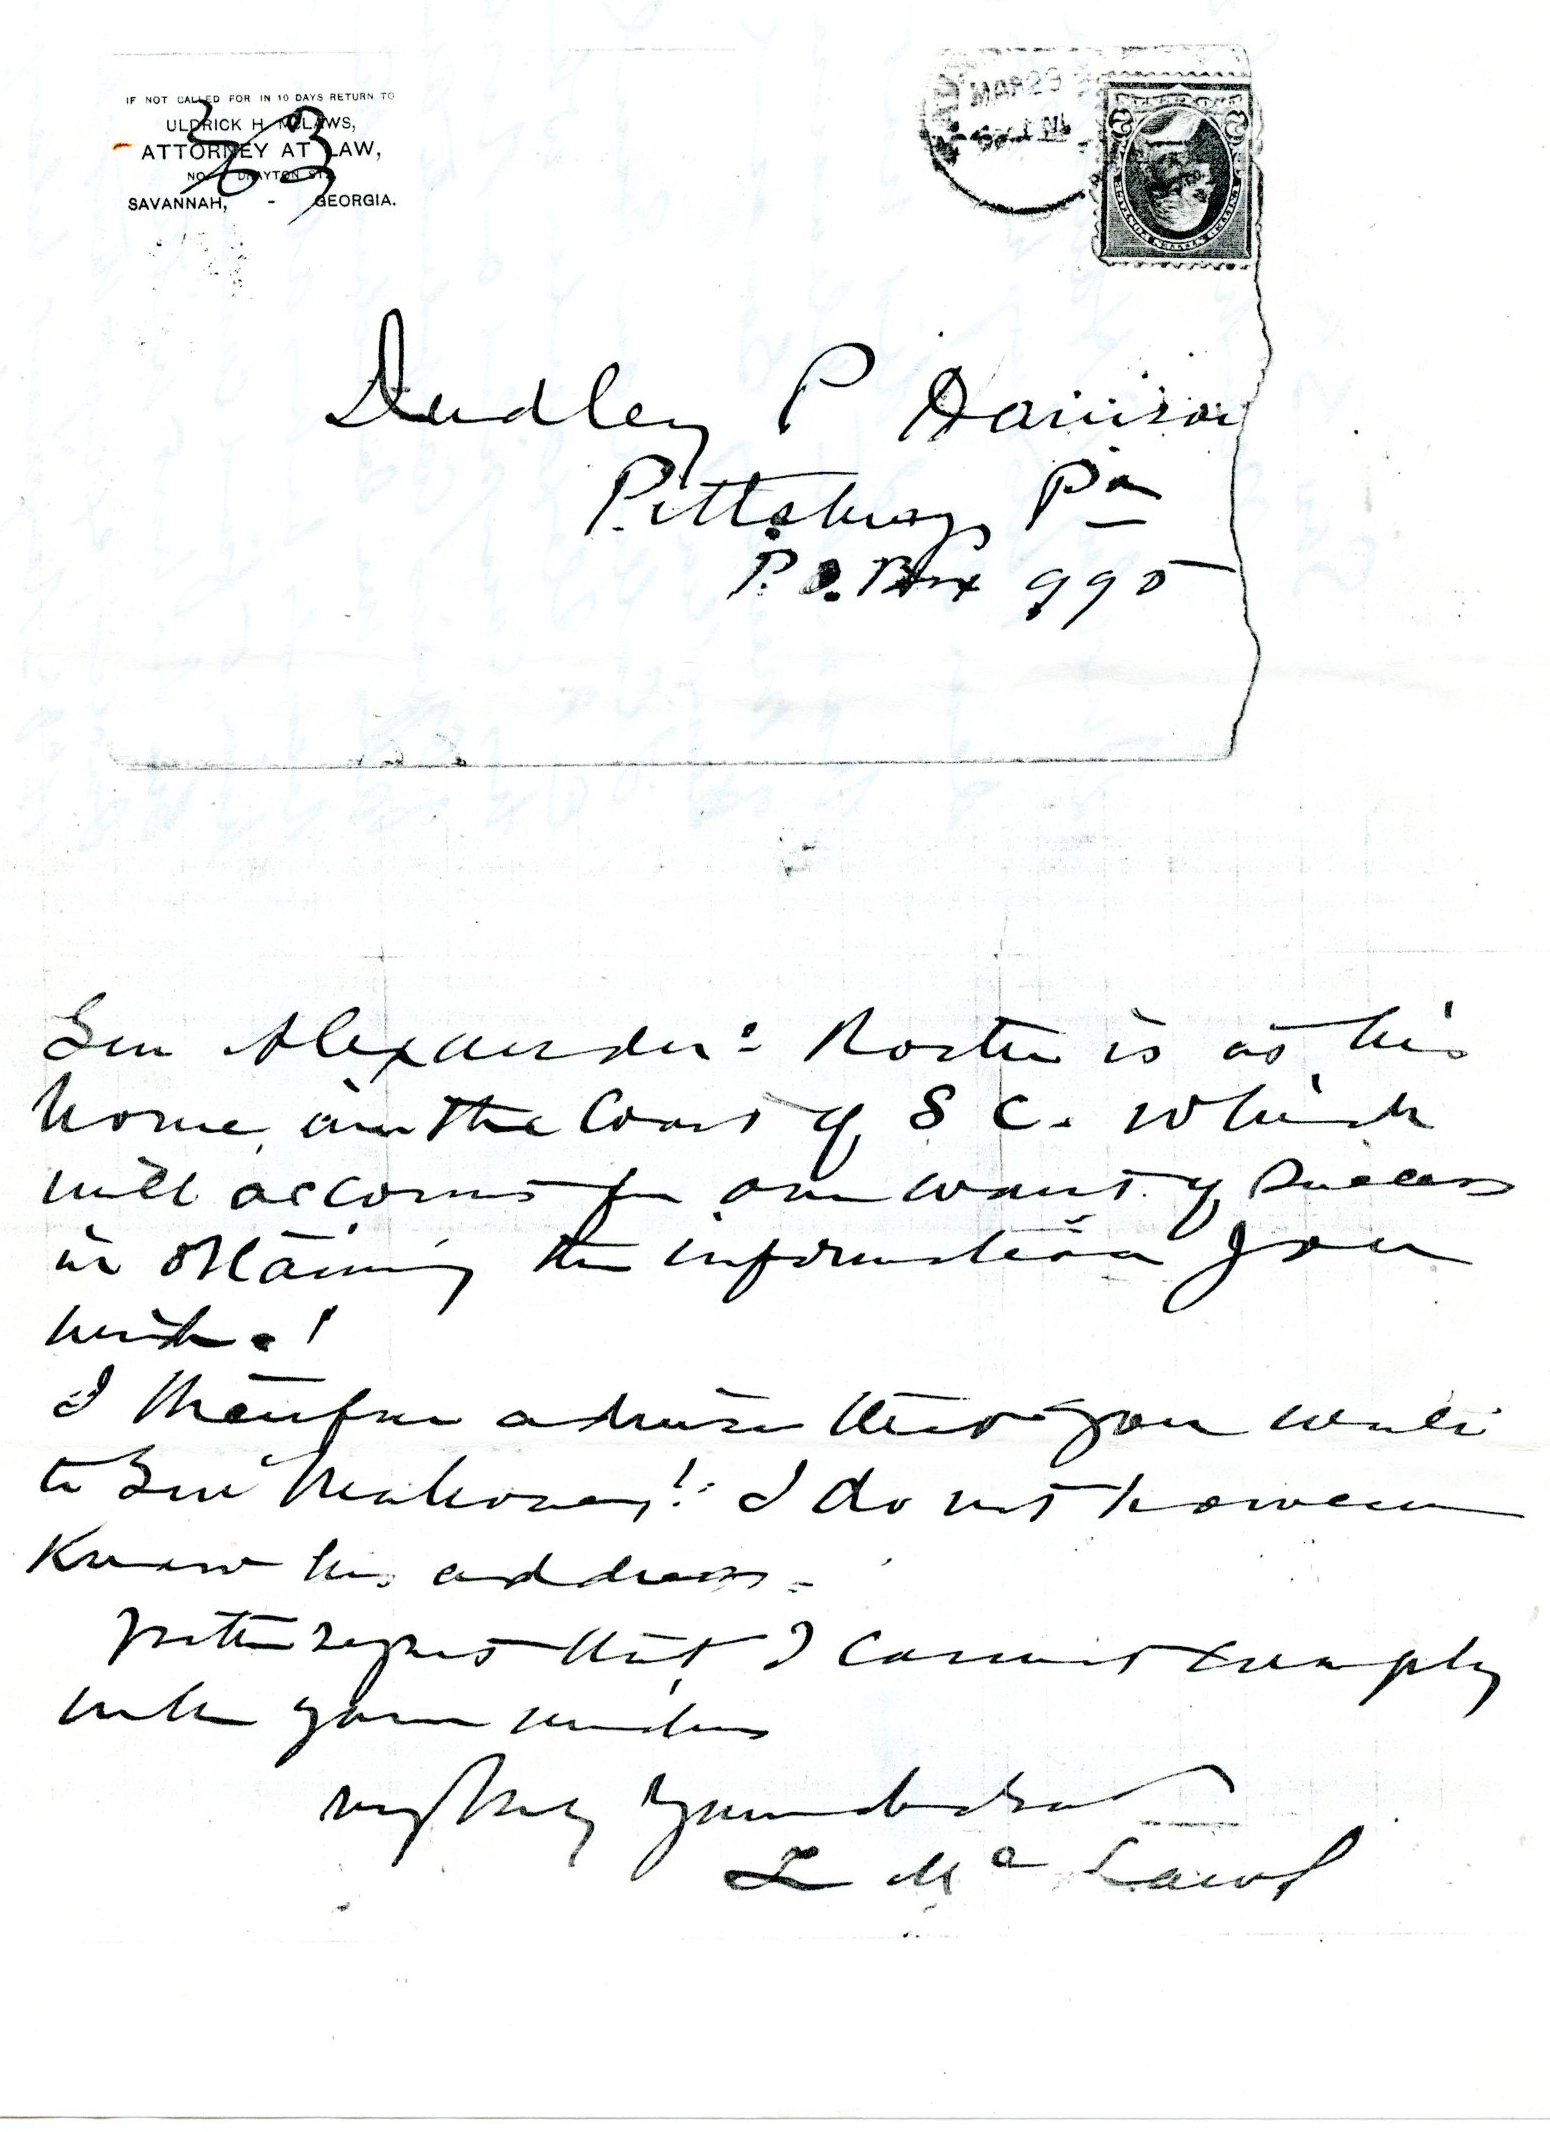 IF NOT CALLED FOR IN 10 DAYS RETURN TO
ULDRICK H. McLAWS,
ATTORNEY AT LAW,
NO. DRAYTON ST.
SAVANNAH, - GEORGIA.
33
Dudley P
Pittsburg Pa
P.O. Box 995
UNITED STATES POSTAGE
2 2
Gen Alexander: is at his
home on the Coast of S C. which
will account for our want of success
in obtaining the information you
wish.!
I therefore advise that you write
to Gen Mahone! I do not however
know his address.
regret that I cannot comply
with your wishes
very truly Your obdsvt
L McLaws